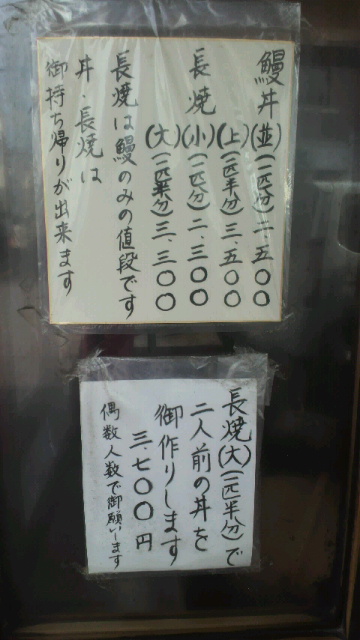 鰻丼(並)(一匹分)二.五〇〇
(上)(一匹半分)三.五〇〇
長焼(小)(一匹分)二.三〇〇
(大)(一匹半分)三.三〇〇
長焼は鰻のみの値段です
丼・長焼は
御持ち帰りが出来ます
長焼(大)(一匹半分)で
二人前の丼を
御作りします
三.七〇〇円
偶数人数で御願いします